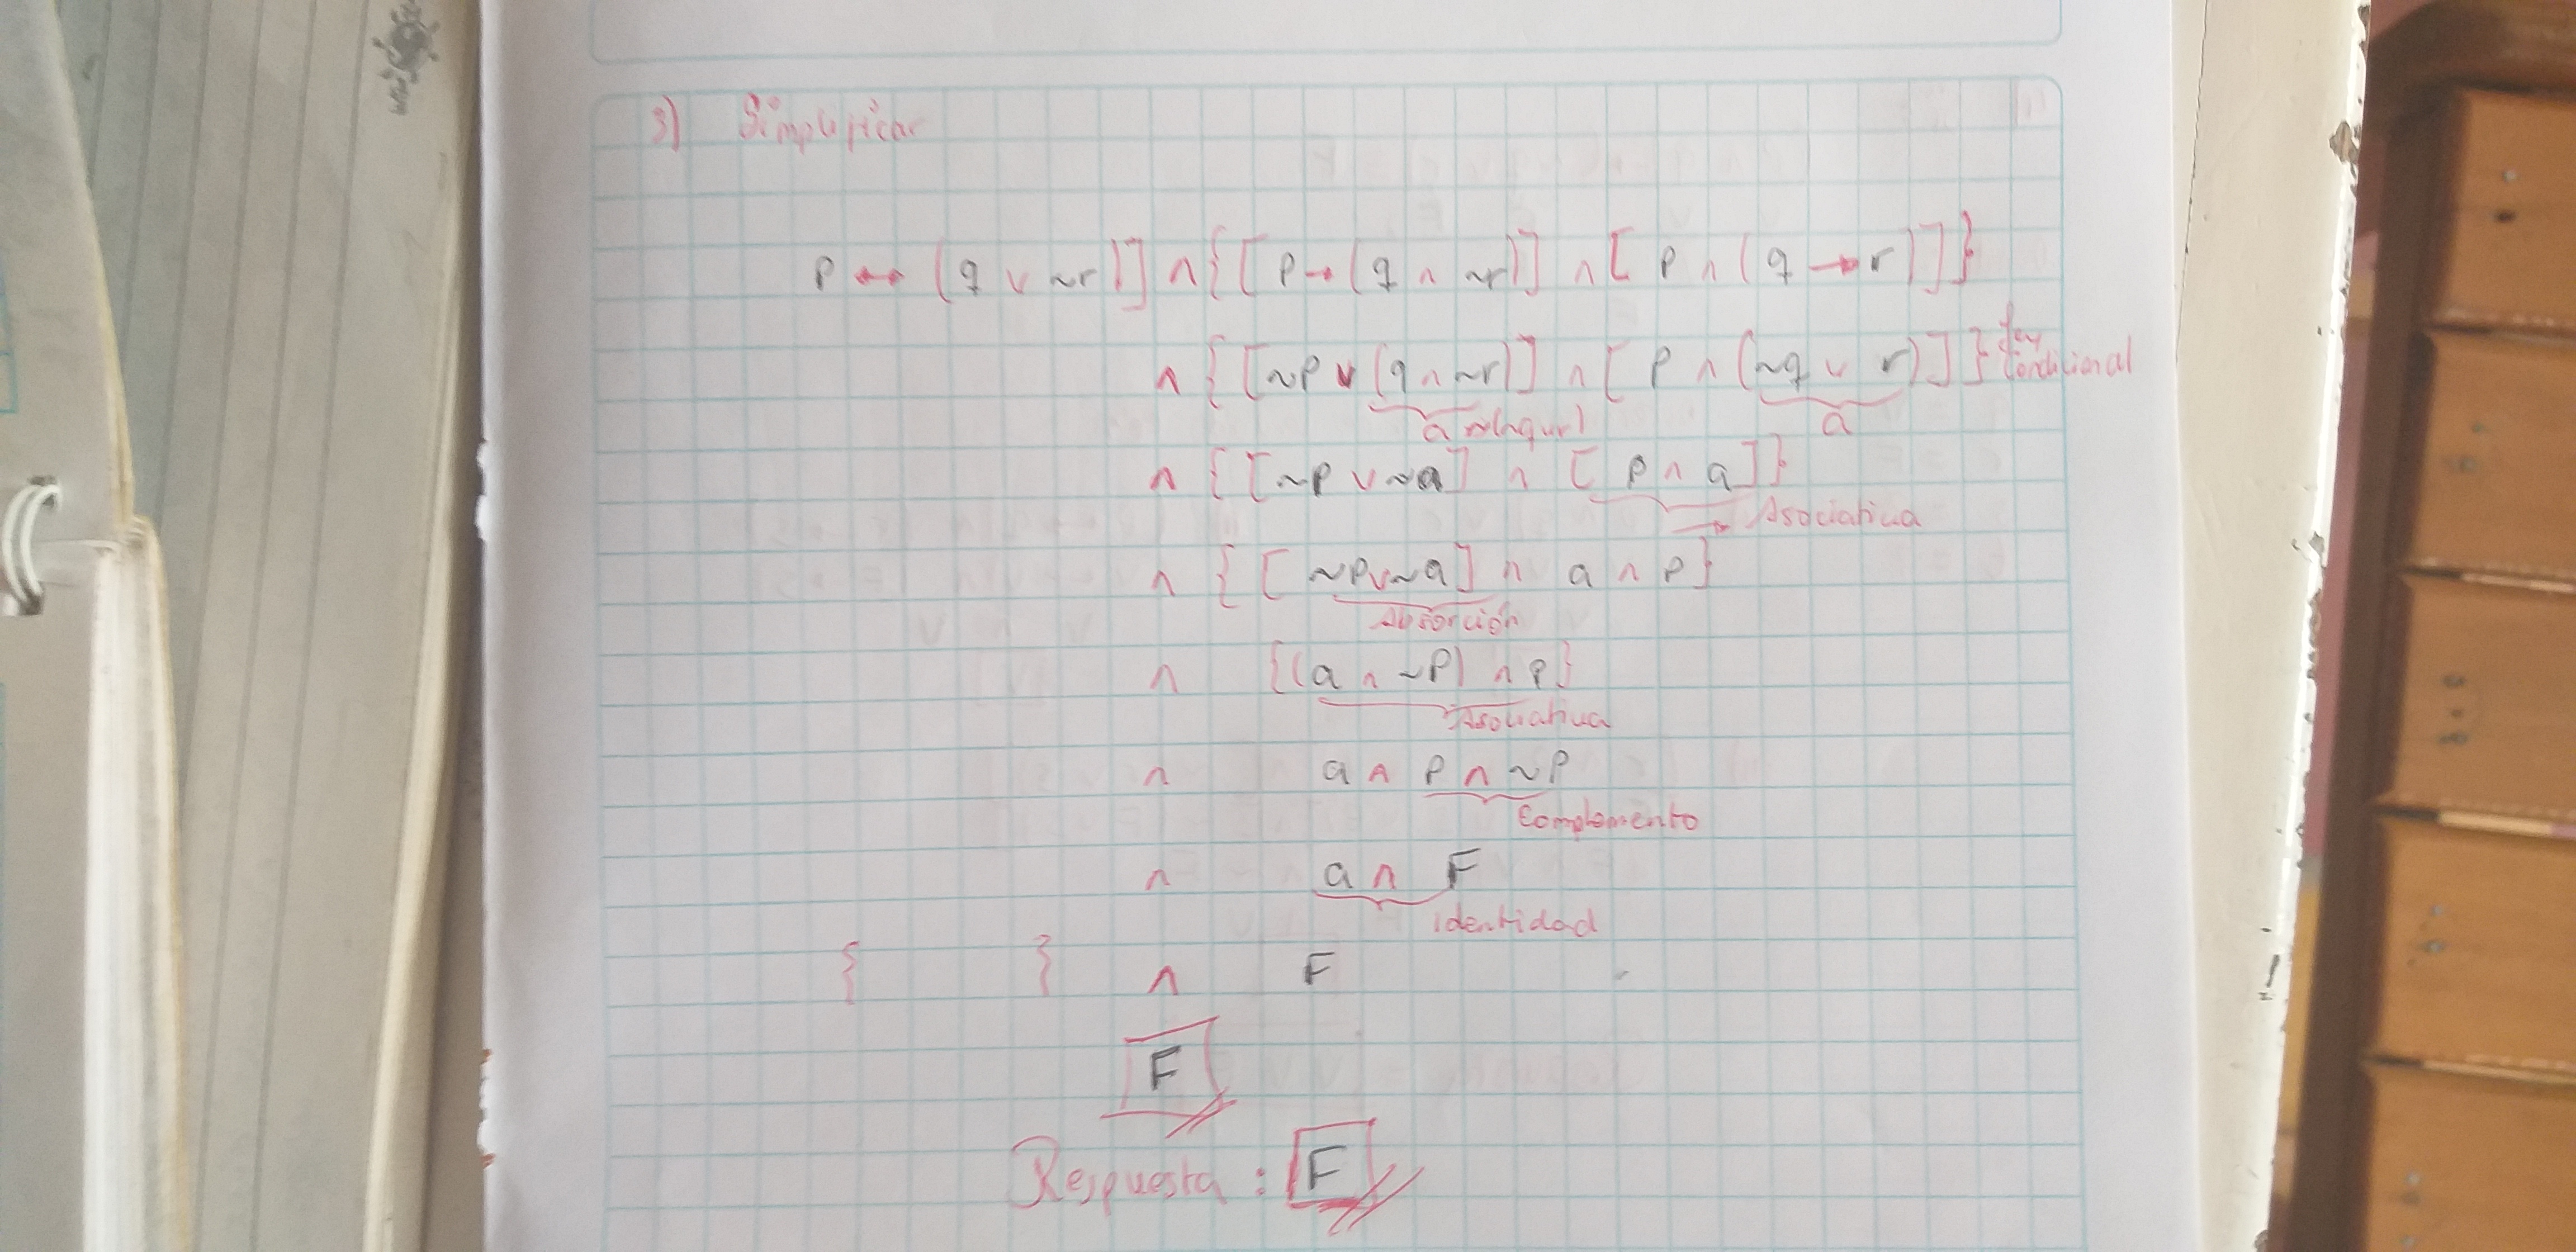 3) Simplificar
p ↔ (q ∨ ~r)] ∧ {[p → (q ∧ ~r)] ∧ [p ∧ (q → r)]}
∧ {[~p ∨ (q ∧ ~r)] ∧ [p ∧ (~q ∨ r)]} Ley Condicional
a ~(~q∨r) a
∧ {[~p ∨ ~a] ∧ [p ∧ a]}
→ Asociativa
∧ {[~p∨~a] ∧ a ∧ p}
Absorción
∧ {(a ∧ ~p) ∧ p}
Asociativa
∧ a ∧ p ∧ ~p
Complemento
∧ a ∧ F
identidad
{ } ∧ F
F
Respuesta : F